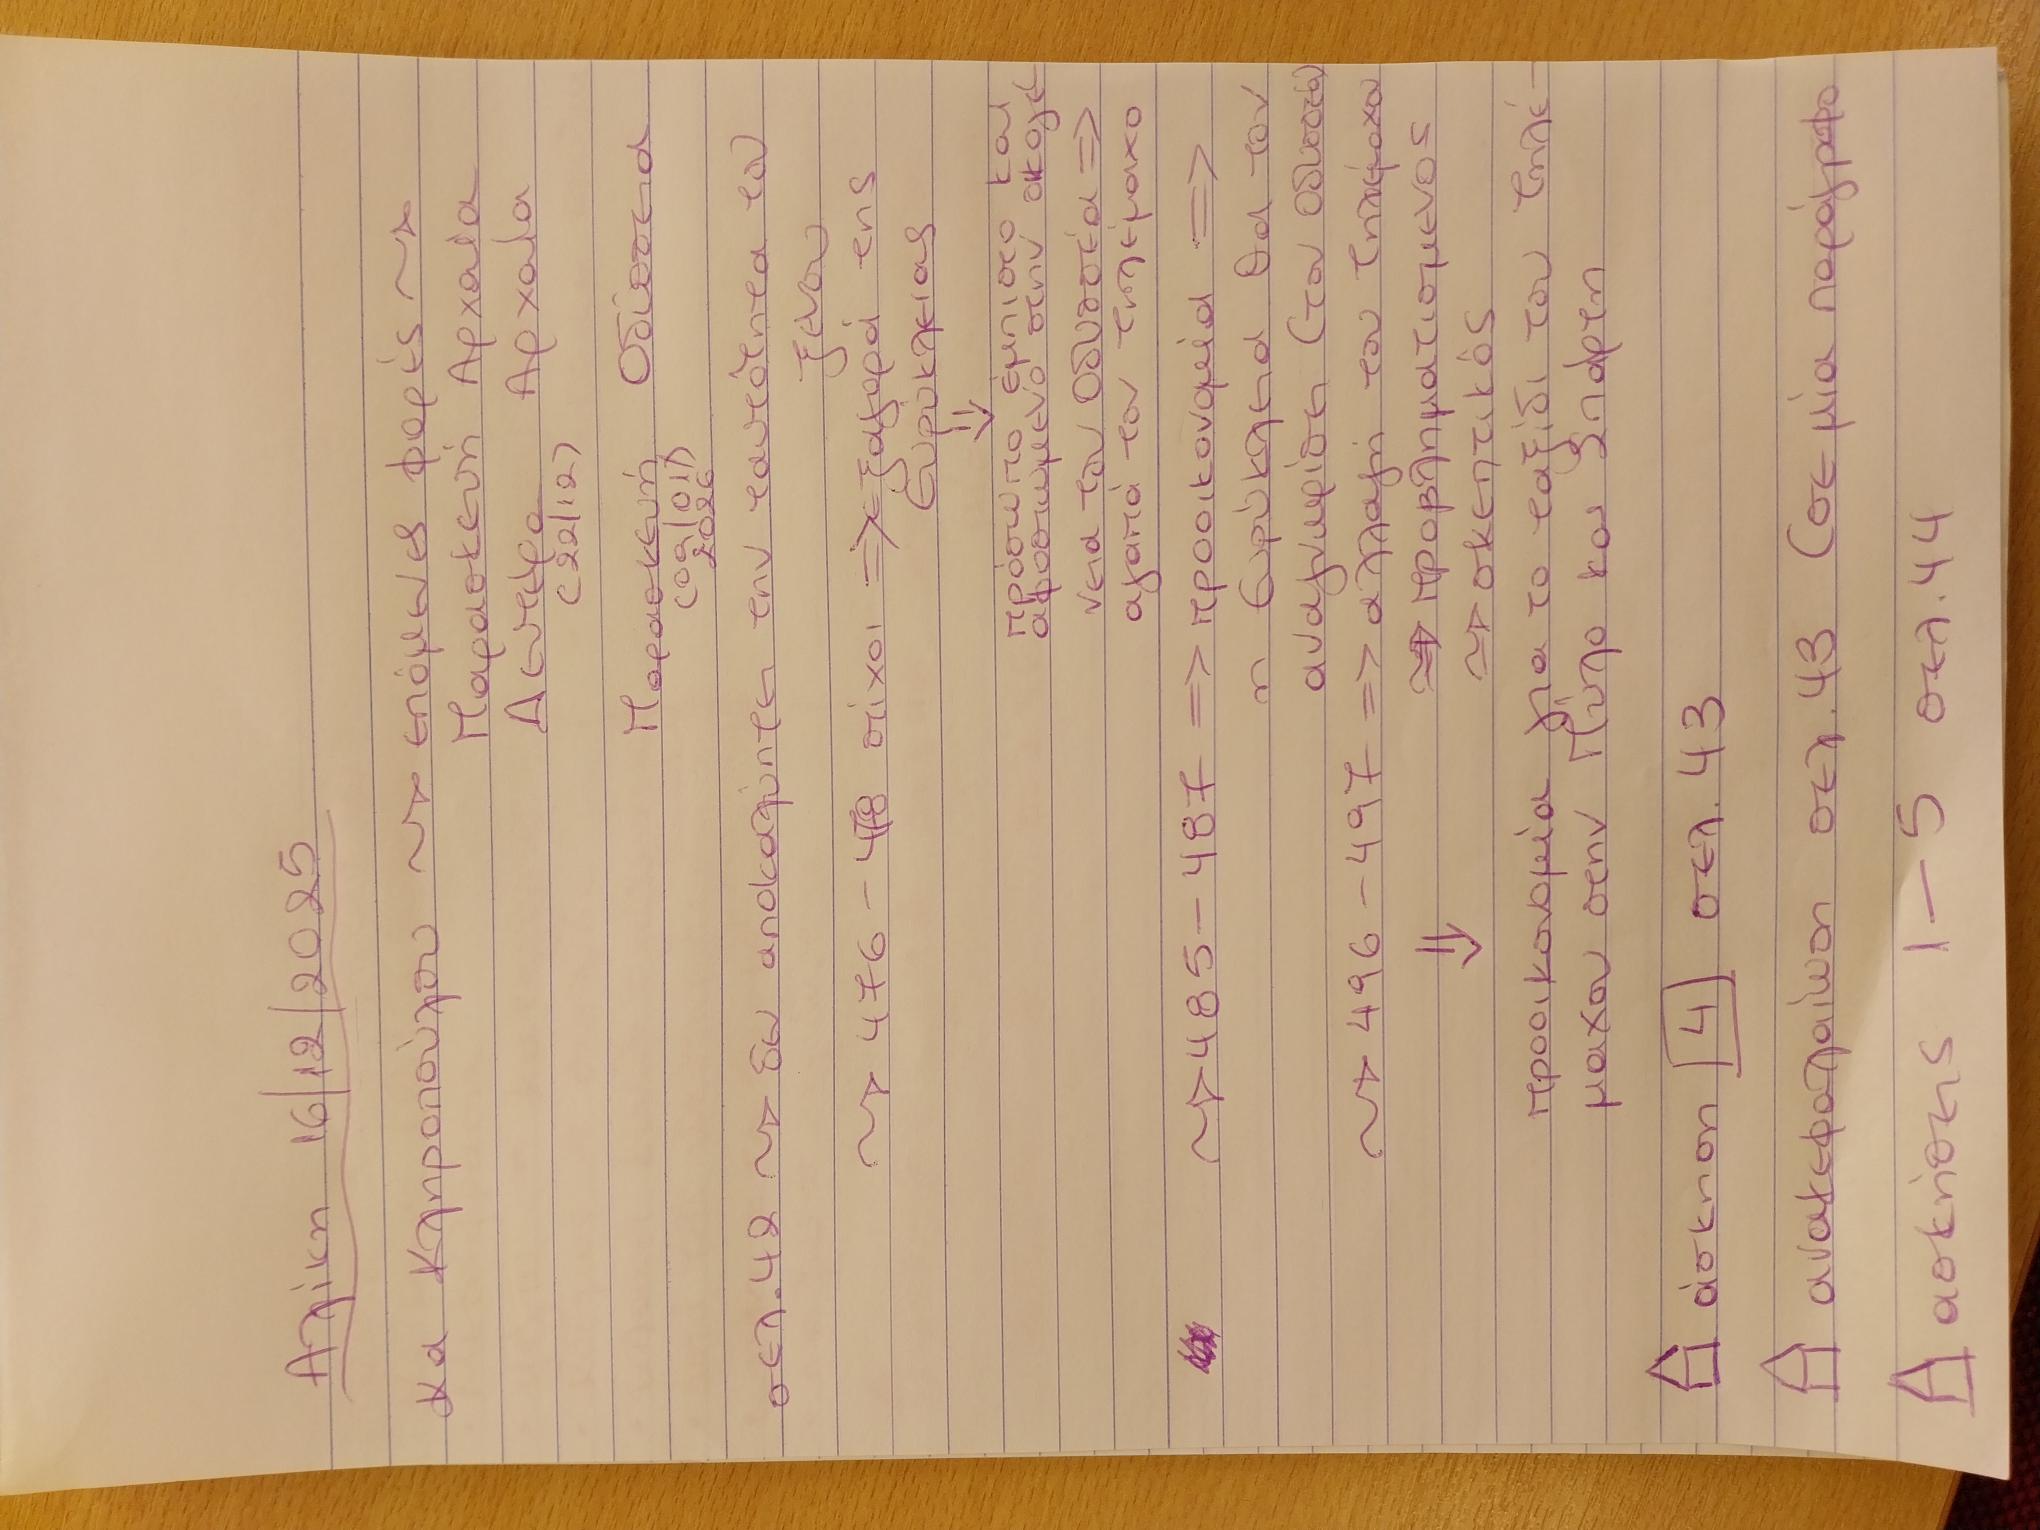 Αλίκη 16/12/2025
κα Κληροπούλου ~> επόμενες φορές ~>
Παρασκευή Αρχαία
Δευτέρα Αρχαία
(22/12)
Παρασκευή Οδύσσεια
(09/01/
2026)
σελ.42 ~> δεν αποκαλύπτει την ταυτότητα του
ξένου
~> 476-478 στίχοι => εξαγορά της
Ευρύκλειας
⇓
πρόσωπο έμπιστο και
αφοσιωμένο στην οικογέ
νεια του Οδυσσέα =>
αγαπά τον τηλέμαχο
~> 485-487 => προοικονομεία =>
η Ευρύκλεια θα τον
αναγνωρίσει (τον Οδυσσέα)
~> 496-497 => αλλαγή του τηλέμαχου
=> προβληματισμένος
~> σκεπτικός
⇓
προοικονομεία για το ταξίδι του τηλέ-
μαχου στην Πύλο και Σπάρτη
άσκηση 4 σελ. 43
ανακεφαλαίωση σελ.43 (σε μία παράγραφο
ασκήσεις 1-5 σελ.44